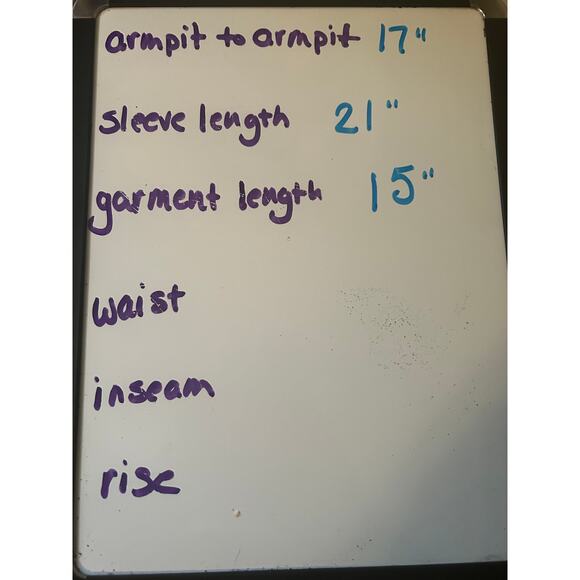 armpit to armpit 17"
sleeve length 21"
garment length 15"
waist
inseam
rise